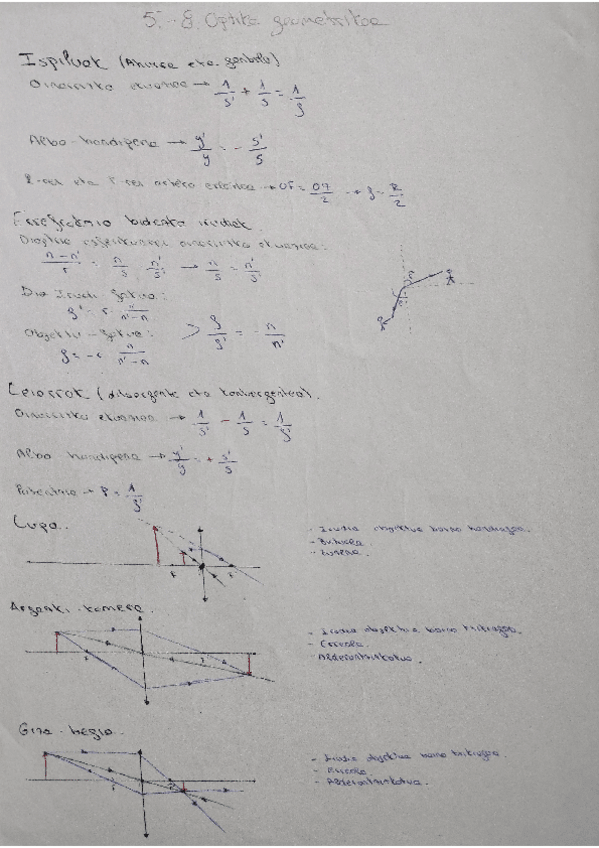 5.-8. Optika geometrikoa
Ispiluak (Ahurra eta ganbila)
Oinarrizko ekuazioa → 1/s' + 1/s = 1/f
Albo-handipena → y'/y = - s'/s
eta → OF = /2 → f = R/2
Errefrakzio bidezko irudiak.
Dioptrio esferikoaren oinarrizko ekuazioa:
n-n'/r = n/s n'/s' → n/s = n'/s'
Irudi-fokua:
f' = r n'/n'-n
Objektu-fokua: > f/f' = - n/n'
f = -r n/n'-n
Leiarrak (dibergente eta konbergenteak).
Oinarrizko ekuazioa → 1/s' - 1/s = 1/f'
Albo handipena → y'/y = + s'/s
Potentzia → P = 1/f'
Lupa.
- Irudia objektua baino handiagoa.
- Birtuala.
- Zuzena.
Argazki-kamera.
- Irudia objektua baino txikiagoa.
- Erreala.
- Alderantzikatua.
Giza-begia.
- Irudia objektua baino txikiagoa.
- Erreala.
- Alderantzikatua.